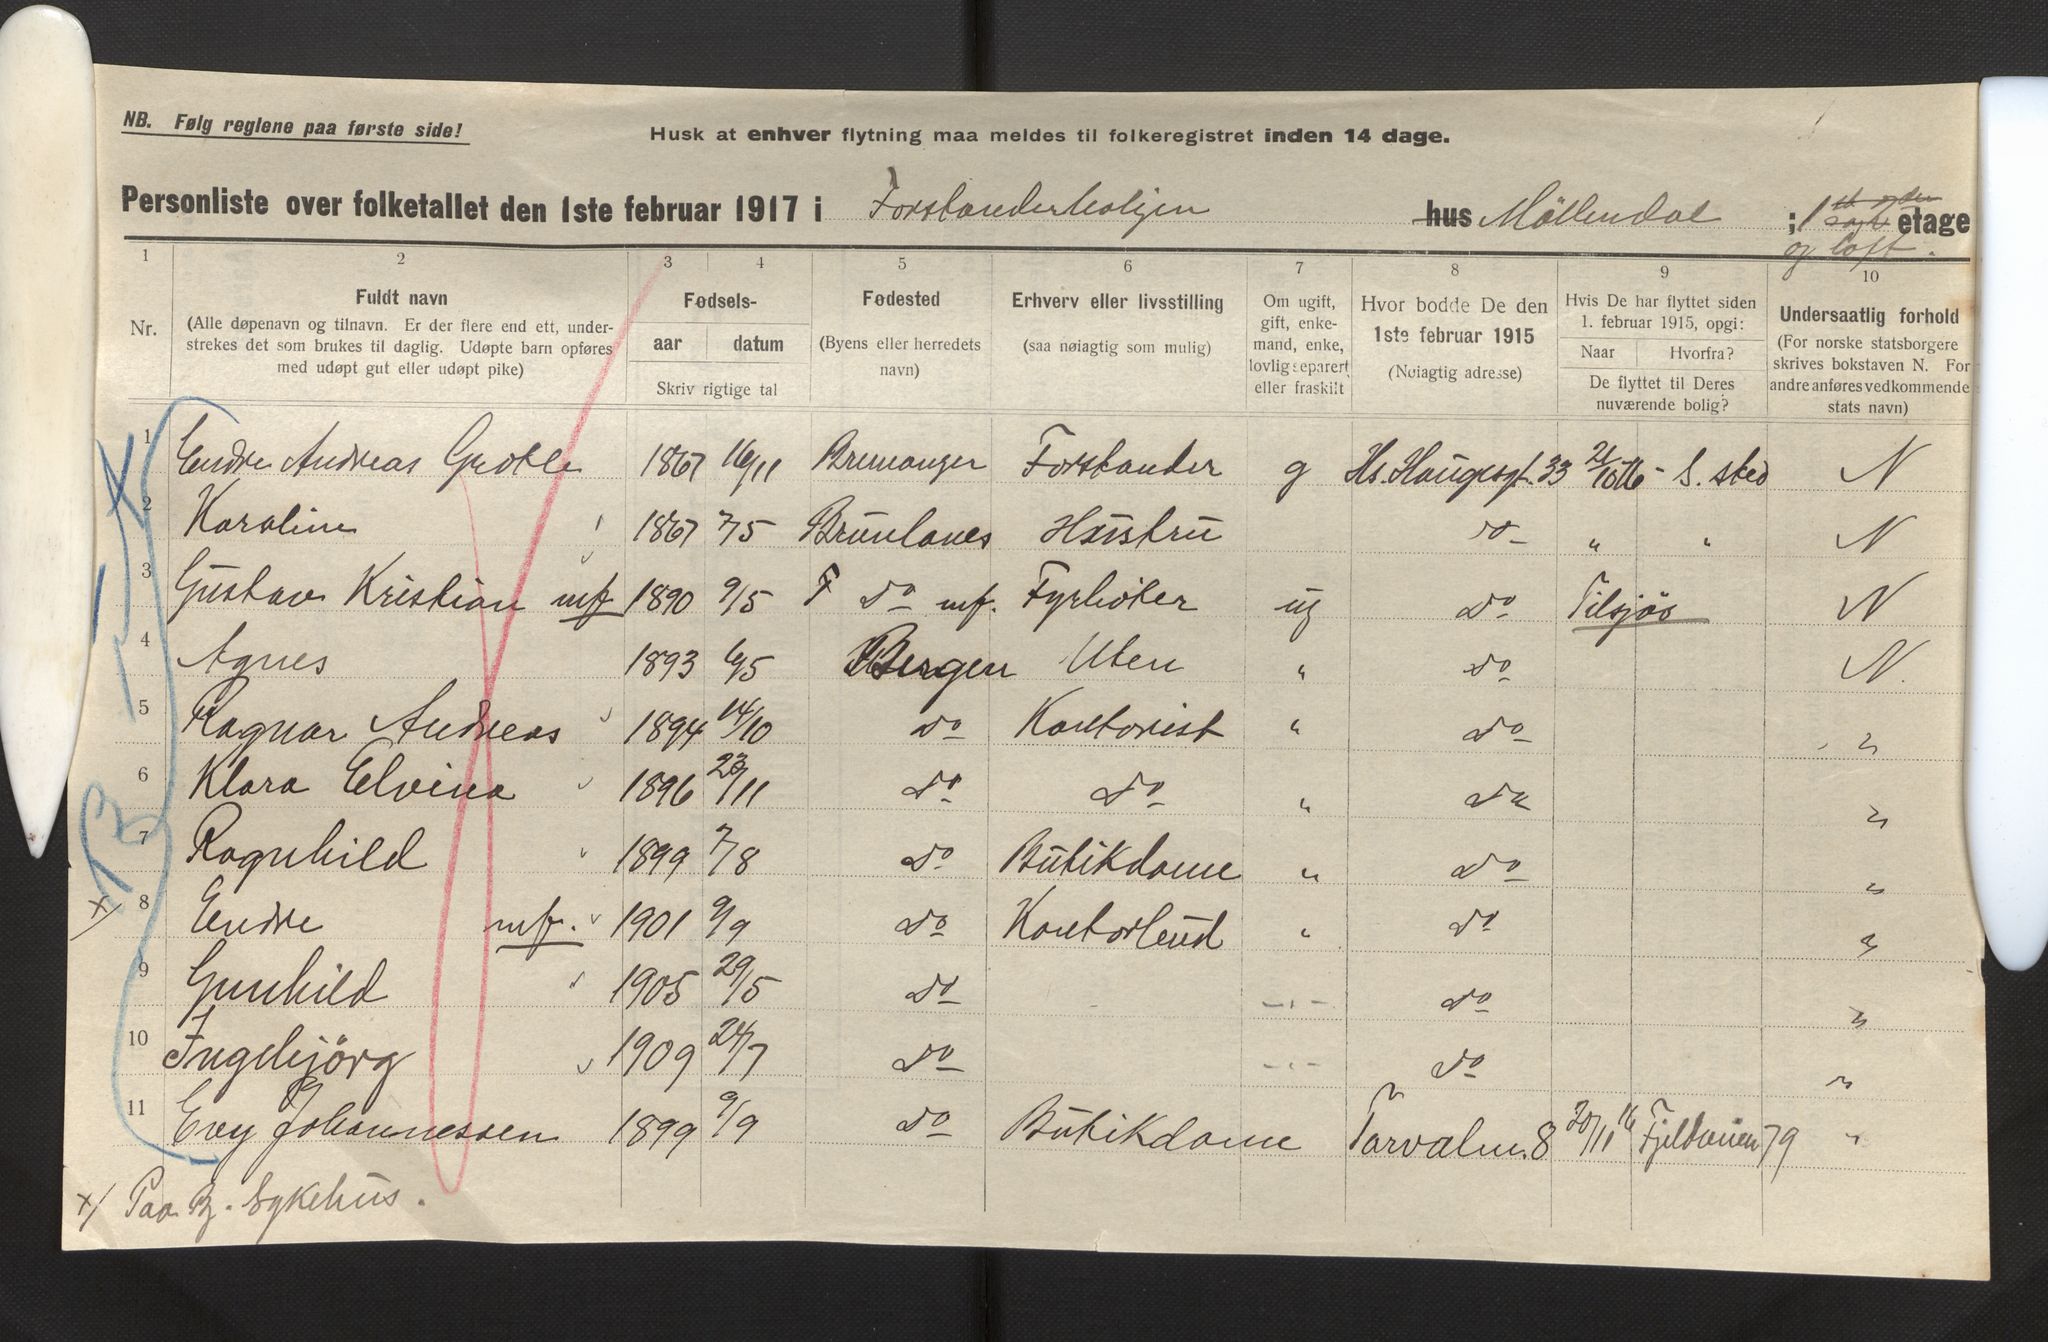 NB. Følg reglene paa første side!
Husk at enhver flytning maa meldes til folkeregistret inden 14 dage.
Personliste over folketallet den 1ste februar 1917 i Forstanderboligen hus Møllendal ; 1 etage
og loft.
1 2 3 4 5 6 7 8 9 10
Nr.
Fuldt navn
(Alle døpenavn og tilnavn. Er der flere end ett, under-
strekes det som brukes til daglig. Udøpte barn opføres
med udøpt gut eller udøpt pike)
Fødsels-
aar datum
Skriv rigtige tal
Fødested
(Byens eller herredets
navn)
Erhverv eller livsstilling
(saa nøiagtig som mulig)
Om ugift,
gift, enke-
mand, enke,
lovlig separert
eller fraskilt
Hvor bodde De den
1ste februar 1915
(Nøiagtig adresse)
Hvis De har flyttet siden
1. februar 1915, opgi:
Naar Hvorfra?
De flyttet til Deres
nuværende bolig?
Undersaatlig forhold
(For norske statsborgere
skrives bokstaven N. For
andre anføres vedkommende
stats navn)
1 Endre Andreas Grotle 1867 16/11 Bremanger Forstander g Hs. Haugesgt. 33 21/10 16 - S. sted N
2 Karoline " 1867 7/5 Brunlanes Hustru do " " N
3 Gustav Kristian mf 1890 9/5 F do mf. Fyrbøter ug do Tilsjøs N
4 Agnes 1893 6/5 Bergen Uten " do N.
5 Ragnar Andreas " 1894 14/10 do Kontorist " do "
6 Klara Elvina " 1896 23/11 do do " do "
7 Ragnhild " 1899 7/8 do Butikdame " do "
x) 8 Endre mf. " 1901 9/9 do Kontorbud " do "
9 Gunhild " 1905 29/5 do - " - do "
10 Ingebjørg " 1909 24/7 do - " - do "
11 Evy Johannessen 1899 9/9 do Butikdame Torvalm. 8 20/11 16 Fjeldveien 79 "
x) Paa B. Sykehus.